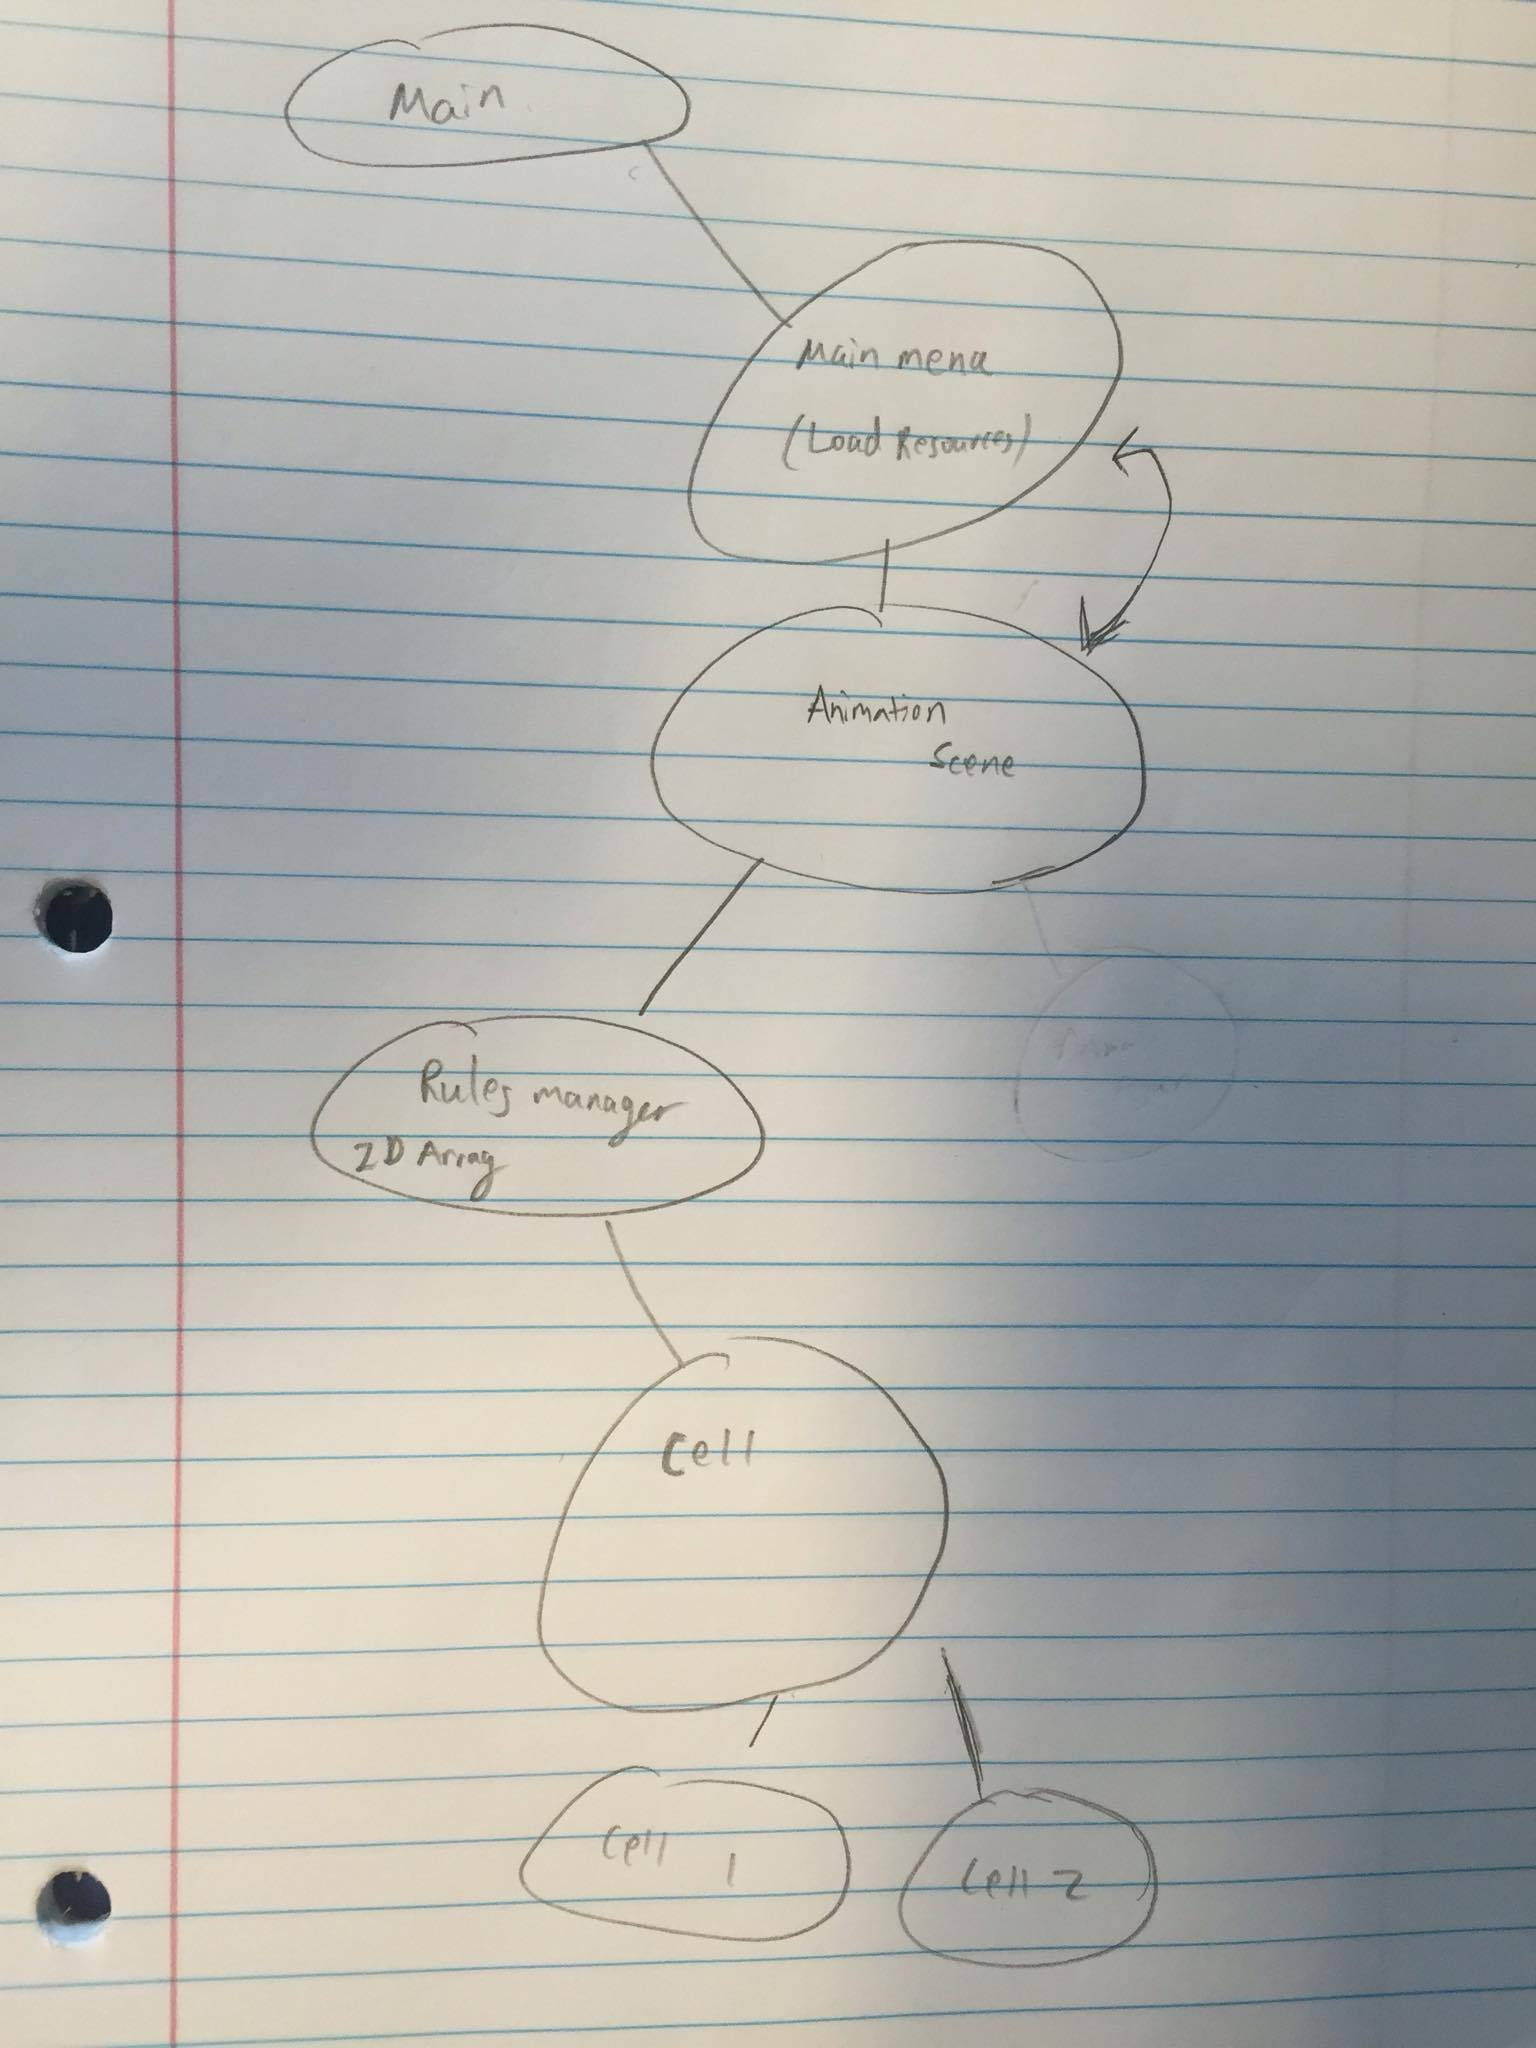 Main
Main menu
(Load Resources)
Animation
Scene
Rules manager
2D Array
Cell
Cell 1
Cell 2